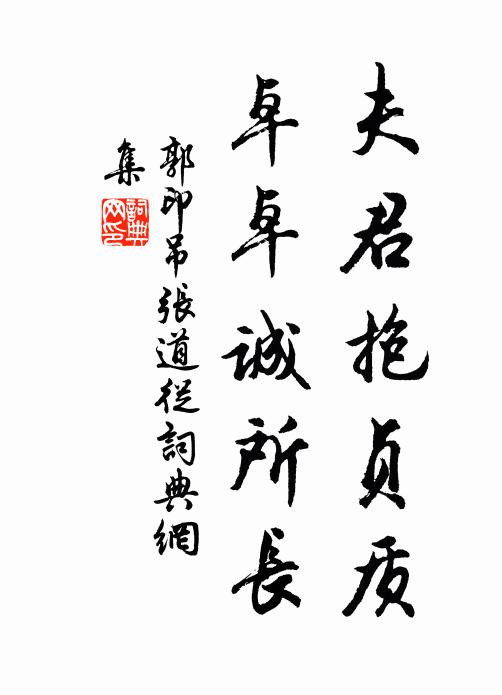 夫君抱贞质
卓卓誠所長
郭印吊張道從詞典網
集
詞典
网印